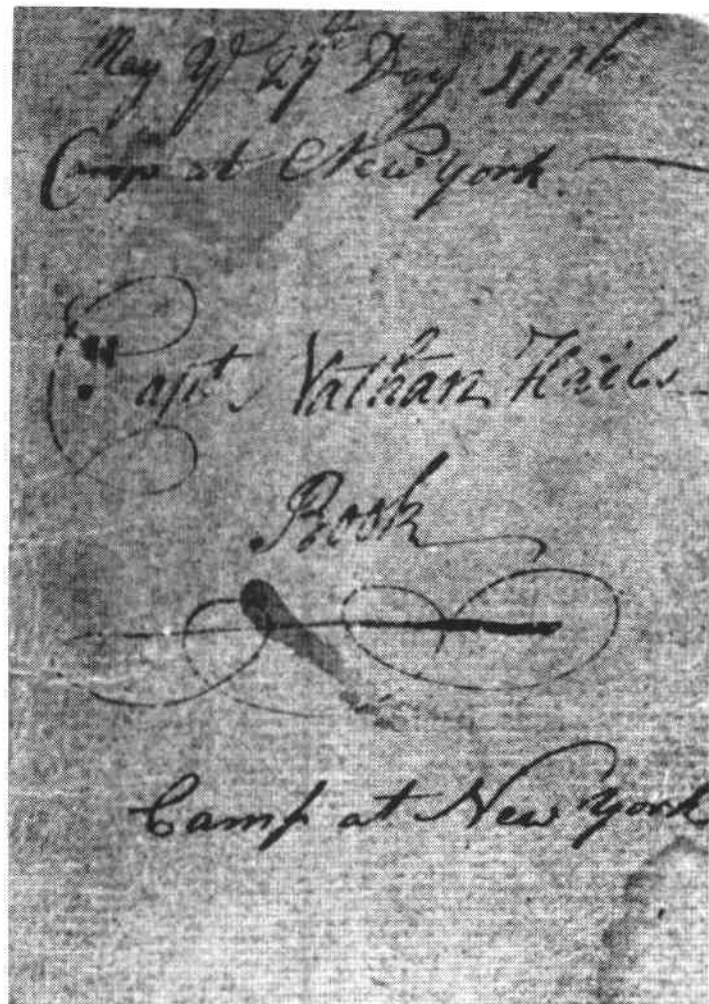 May ye 27th Day 1776
Camp at New york
Capt Nathan Hales
Book
Camp at New york